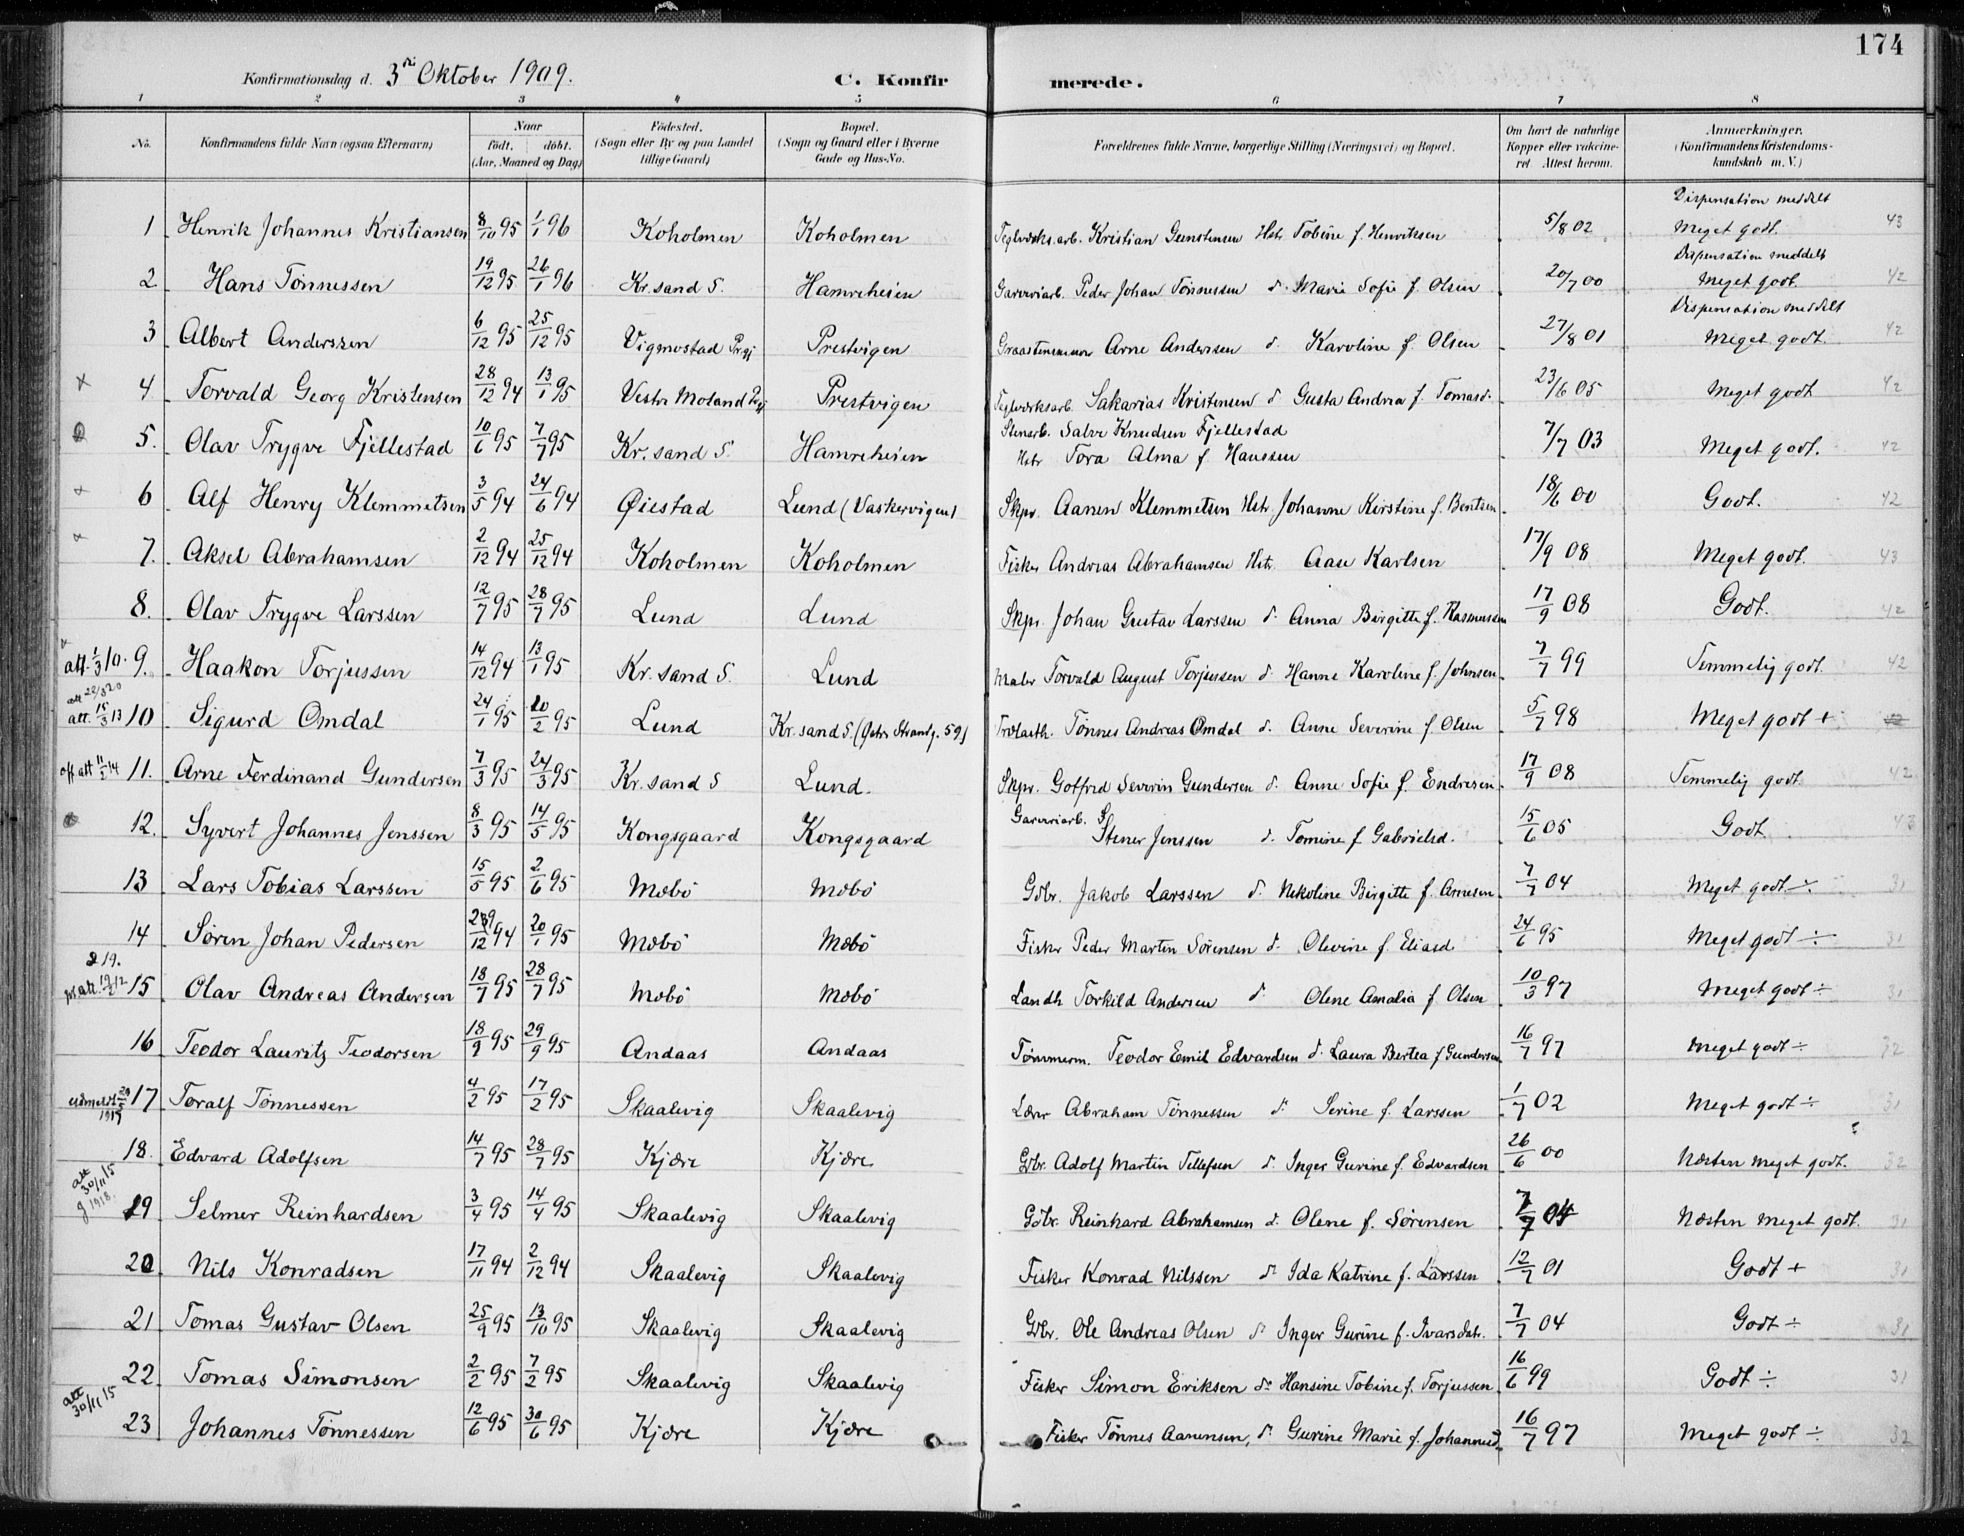 174
Konfirmationsdag d. 3die Oktober 1909. C. Konfirmerede.
1 2 3 4 5 6 7 8
No. Konfirmandens fulde Navn (ogsaa Efternavn) Naar födt. döbt. (Aar, Maaned og Dag) Födested. (Sogn eller By og paa Landet tillige Gaard) Bopæl. (Sogn og Gaard eller i Byerne Gade og Hus-No. Forældrenes fulde Navne, borgerlige Stilling (Næringsvei) og Bopæl. Om havt de naturlige Kopper eller vakcineret. Attest herom. Anmærkninger. (Konfirmandens Kristendomskundskab m. V.)
Dispensation meddelt
1 Henrik Johannes Kristiansen 8/10 95 1/1 96 Koholmen Koholmen Teglværks.arb. Kristian Gunstensen Hstr Tobine f. Henriksen 5/8 02 Meget godt. 43
Dispensation meddelt
2 Hans Tønnessen 19/12 95 26/1 96 Kr.sand S. Hamreheien Garveriarb. Peder Johan Tønnessen d. Marie Sofie f. Olsen 20/7 00 Meget godt. 42
Dispensation meddelt
3 Albert Anderssen 6/12 95 25/12 95 Vigmostad Prgj Prestvigen Graastensmurer Arne Andersen d. Karoline f. Olsen 27/8 01 Meget godt. 42
x 4 Torvald Georg Kristensen 28/12 94 13/1 95 Vestre Moland Prgj Prestvigen Teglværksarb. Sakarias Kristensen d. Gusta Andrea f. Tomasd. 23/6 05 Meget godt 42
5. Olav Trygve Fjellestad 10/6 95 7/7 95 Kr.sand S. Hamreheien Stenarb. Salve Knudsen Fjellestad 7/7 03 Meget godt. 42
Hstr Tora Alma f. Hanssen
x 6 Alf Henry Klemmetsen 3/5 94 24/6 94 Øiestad Lund (Vaskervigen) Skpr. Aanen Klemmetsen Hstr. Johanne Kirstine f. Bentsen 18/6 00 Godt. 42
7. Aksel Abrahamsen 2/12 94 25/12 94 Koholmen Koholmen Fisker Andreas Abrahamsen Hstr. Aase Karlsen 17/9 08 Meget godt. 43
8. Olav Trygve Larssen 12/7 95 28/7 95 Lund Lund Skpr. Johan Gustav Larssen d. Anna Birgitte f. Rasmussen 17/9 08 Godt. 42
att. 1/3 10. 9. Haakon Torjussen 14/12 94 13/1 95 Kr.sand S. Lund Maler Torvald August Torjussen d. Hanne Karoline f. Johnsen 7/7 99 Temmelig godt. 42
att 22/3 20
att. 15/3 13 10 Sigurd Omdal 24/1 95 20/2 95 Lund Kr.sand S. (Østre Strandg. 59) Tønnes Andreas Omdal d. Anne Severine f. Olsen 5/7 98 Meget godt + 42
att 11/5 14 11. Arne Ferdinand Gundersen 7/3 95 24/3 95 Kr.sand S Lund. Skpr. Gotfred Severin Gundersen d. Anne Sofie f. Endresen 17/9 08 Temmelig godt. 42
12. Syvert Johannes Jenssen 8/3 95 14/5 95 Kongsgaard Kongsgaard Garveriarb. Stener Jenssen d. Tomine f Gabrielsd. 15/6 05 Godt. 43
13 Lars Tobias Larssen 15/5 95 2/6 95 Mæbö Mæbö Gdbr. Jakob Larssen d. Nikoline Birgitte f. Arnesen 7/7 04 Meget godt ÷ 31
14 Søren Johan Pedersen 29/12 94 20/1 95 Mæbö Mæbö Fisker Peder Martin Sørensen d. Olevine f. Eliasd 24/6 95 Meget godt ÷ 31
219.
att. 19/2 12 15 Olav Andreas Andersen 18/7 95 28/7 95 Mæbö Mæbö Landh. Torkild Andersen d. Olene Amalia f Olsen 10/3 97 Meget godt ÷ 31
16 Teodor Lauritz Teodorsen 18/9 95 29/9 95 Andaas Andaas Tømmerm. Teodor Emil Edvardsen d. Laura Bertea f Gundersen 16/7 97 Meget godt ÷ 32
udmeldt 20/5 1919 17 Toralf Tønnessen 4/2 95 17/2 95 Skaalevig Skaalevig Lærer Abraham Tønnessen d. Serine f. Larssen 1/7 02 Meget godt ÷ 31
18. Edvard Adolfsen 14/7 95 28/7 95 Kjære Kjære Gdbr. Adolf Martin Tellefsen d. Inger Gurine f. Edvardsen 26/6 00 Næsten meget godt. 32
att 30/11 15
g 1918. 19 Selmer Reinhardsen 3/4 95 14/4 95 Skaalevig Skaalevig Gdbr. Reinhard Abrahamsen d. Olene f. Sørensen 7/7 04 Næsten meget godt. 31
20 Nils Konradsen 17/11 94 2/12 94 Skaalevig Skaalevig Fisker Konrad Nilssen d. Ida Katrine f. Larssen 12/7 01 Godt + 31
21 Tomas Gustav Olsen 25/9 95 13/10 95 Skaalevig Skaalevig Gdbr. Ole Andreas Olsen d. Inger Gurine f. Ivarsdtr. 7/7 04 Godt ÷ 31
22 Tomas Simonsen 2/2 95 7/2 95 Skaalevig Skaalevig Fisker Simon Eriksen d. Hansine Tobine f. Torjussen 16/6 99 Godt ÷ 31
att 30/11 15 23 Johannes Tønnessen 12/6 95 30/6 95 Kjære Kjære Fisker Tønnes Aanensen, d. Gurine Marie f. Johannesd 16/7 97 Meget godt ÷ 32